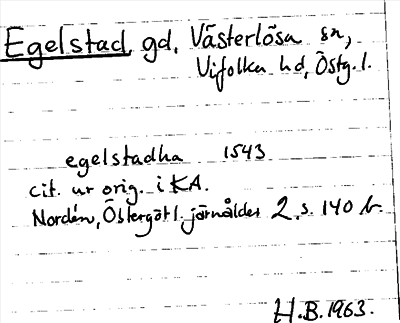 Egelstad gd, Västerlösa sn,
Vifolka hd, Östg. l.
egelstadha 1543
cit. ur orig. i KA.
Nordén, Östergötl. järnålder 2, s. 140 b.
H.B. 1963.